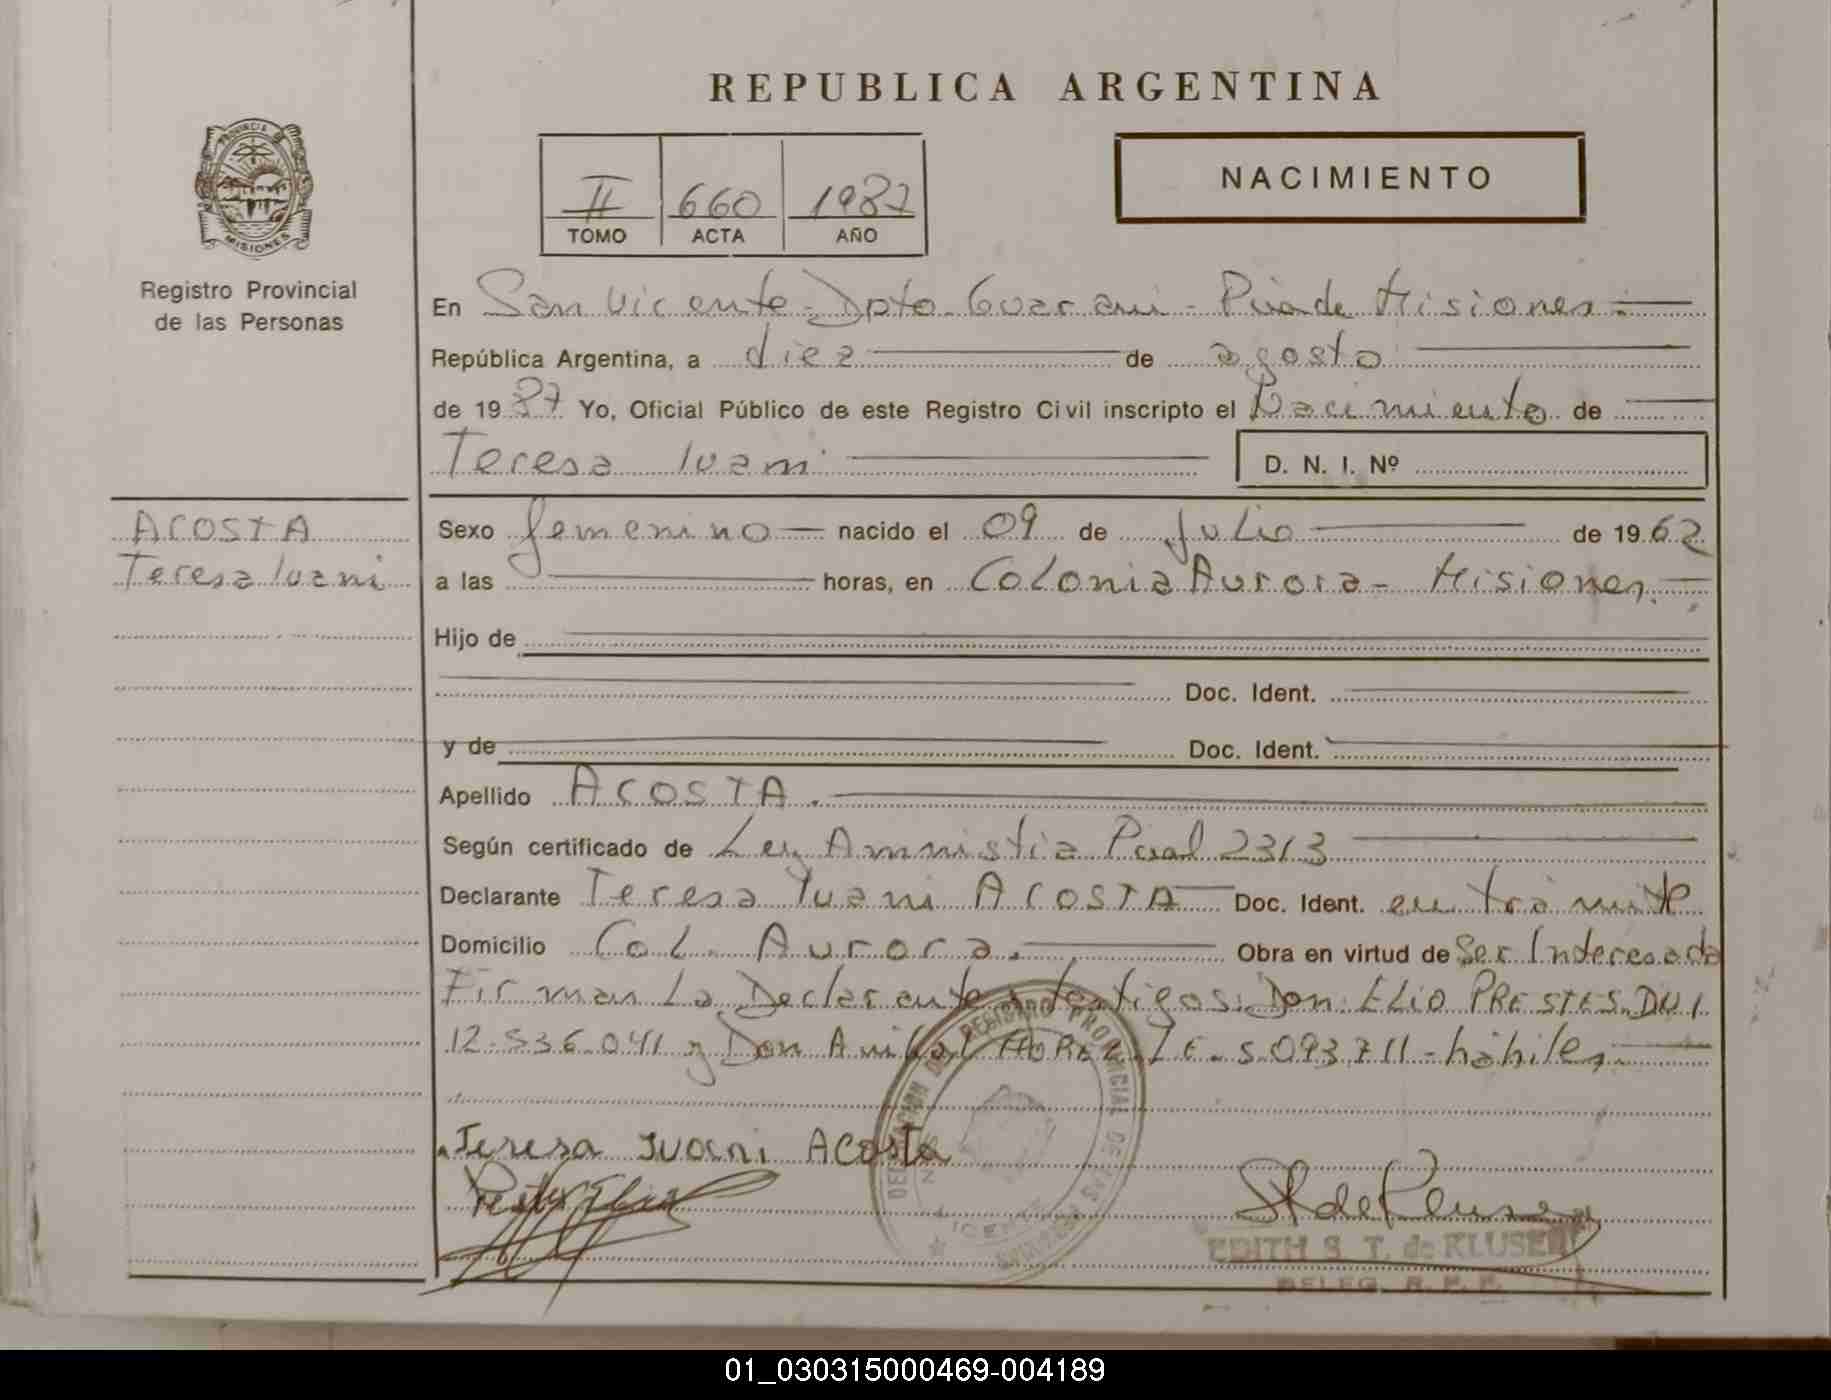 REPUBLICA ARGENTINA
PROVINCIA DE
MISIONES
Registro Provincial
de las Personas
II 660 1987
TOMO ACTA AÑO
NACIMIENTO
En San Vicente - Dpto. Guarani - Pcia de Misiones.
República Argentina, a diez de agosto
de 1987 Yo, Oficial Público de este Registro Civil inscripto el Nacimiento de
Teresa Ivani
D. N. I. Nº
ACOSTA
Teresa Ivani
Sexo femenino nacido el 09 de Julio de 1962
a las horas, en Colonia Aurora - Misiones.
Hijo de
Doc. Ident.
y de Doc. Ident.
Apellido ACOSTA.
Según certificado de Ley Amnistia Pcial 2313
Declarante Teresa Ivani ACOSTA Doc. Ident. en trámite
Domicilio Col. Aurora. Obra en virtud de Ser Interesada
Firman La Declarante y testigos: Don: ELIO PRESTES. DNI
12.536.041 y Don Anibal L.E. 5.093.711 - hábiles
Teresa Ivani ACosta
DELEGACION DEL REGISTRO PROVINCIAL DE LAS PERSONAS
VICENTE
MISIONES
EDITH S. T. de KLUSENER
DELEG. R. P. P.
01_030315000469-004189